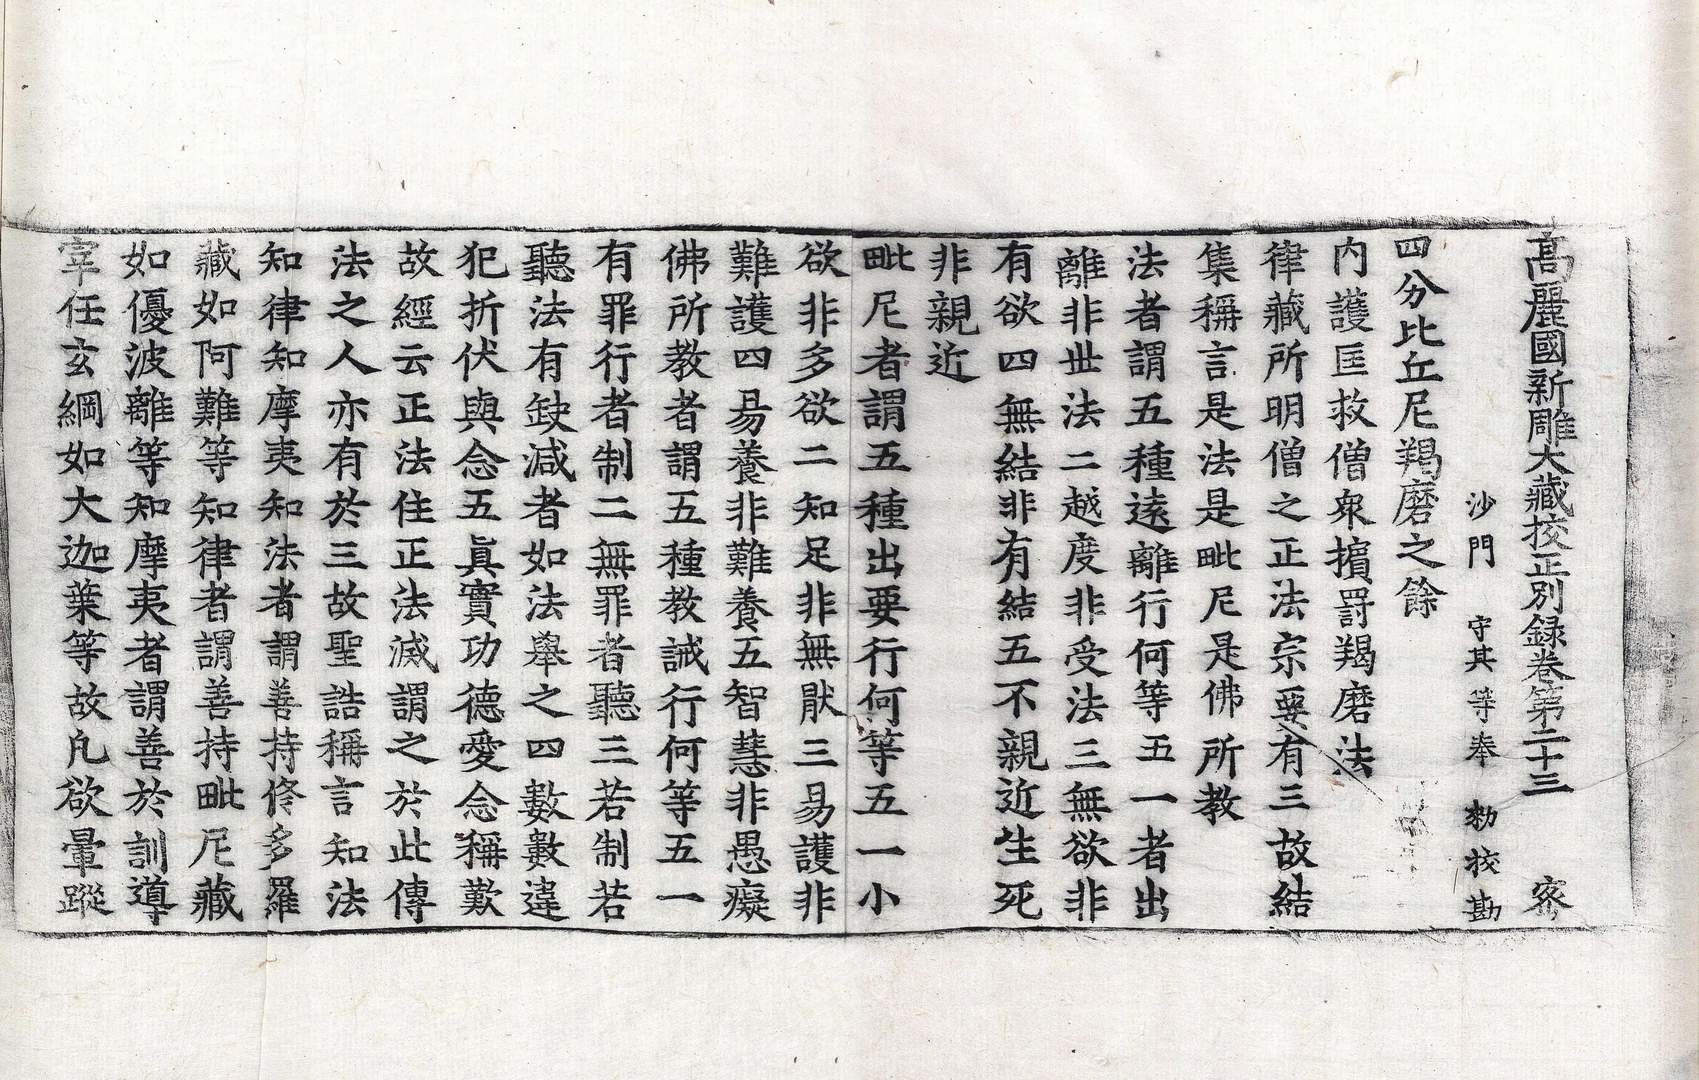 高麗國新雕大藏校正別錄卷第二十三　密
沙門　守其等奉　勅校勘
四分比丘尼羯磨之餘
內護匡救僧衆擯罸羯磨法
律藏所明僧之正法宗要有三故結
集稱言是法是毗尼是佛所教
法者謂五種遠離行何等五一者出
離非世法二越度非受法三無欲非
有欲四無結非有結五不親近生死
非親近
毗尼者謂五種出要行何等五一小
欲非多欲二知足非無猒三易護非
難護四易養非難養五智慧非愚癡
佛所教者謂五種教誡行何等五一
有罪行者制二無罪者聽三若制若
聽法有缺減者如法舉之四數數違
犯折伏與念五眞實功德愛念稱歎
故經云正法住正法滅謂之於此傳
法之人亦有於三故聖誥稱言知法
知律知摩夷知法者謂善持修多羅
藏如阿難等知律者謂善持毗尼藏
如優波離等知摩夷者謂善於訓導
宰任玄綱如大迦葉等故凡欲暈蹤